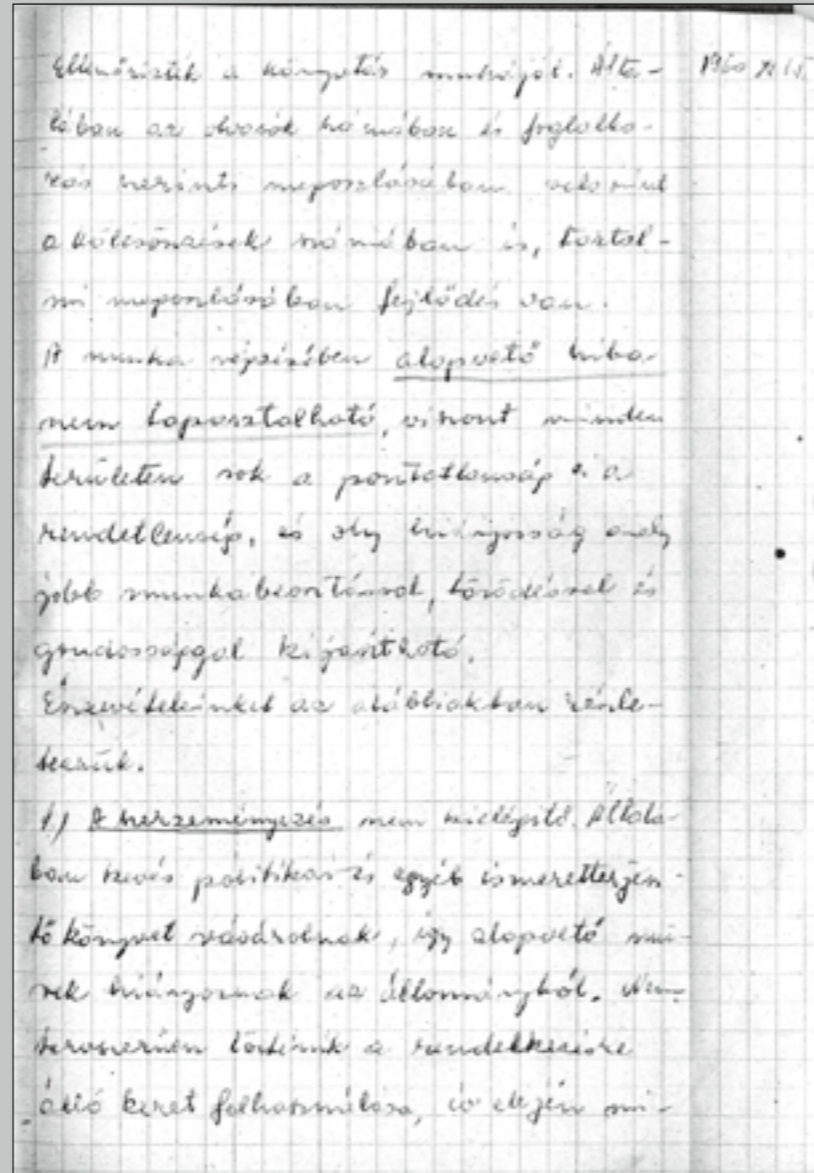 Ellenőriztük a könyvtár munkáját. Álta-
lában az olvasók számában és foglalko-
zás szerinti megoszlásában valamint
a kölcsönzések számában és tartal-
mi megoszlásában fejlődés van.
A munka végzésében alapvető hiba
nem tapasztalható, viszont minden
területen sok a pontatlanság és a
rendetlenség, és oly hiányosság amely
jobb munkabeosztással, törődéssel és
gondossággal kijavítható.
Észrevételeinket az alábbiakban részle-
tezzük.
1./ A szerzeményezés nem kielégítő. Általá-
ban kevés politikai és egyéb ismeretterjesz-
tő könyvet vásárolnak, így alapvető mű-
vek hiányoznak az állományból. Nem
tervszerűen történik a rendelkezésre
álló keret felhasználása, év elején mi-
1960